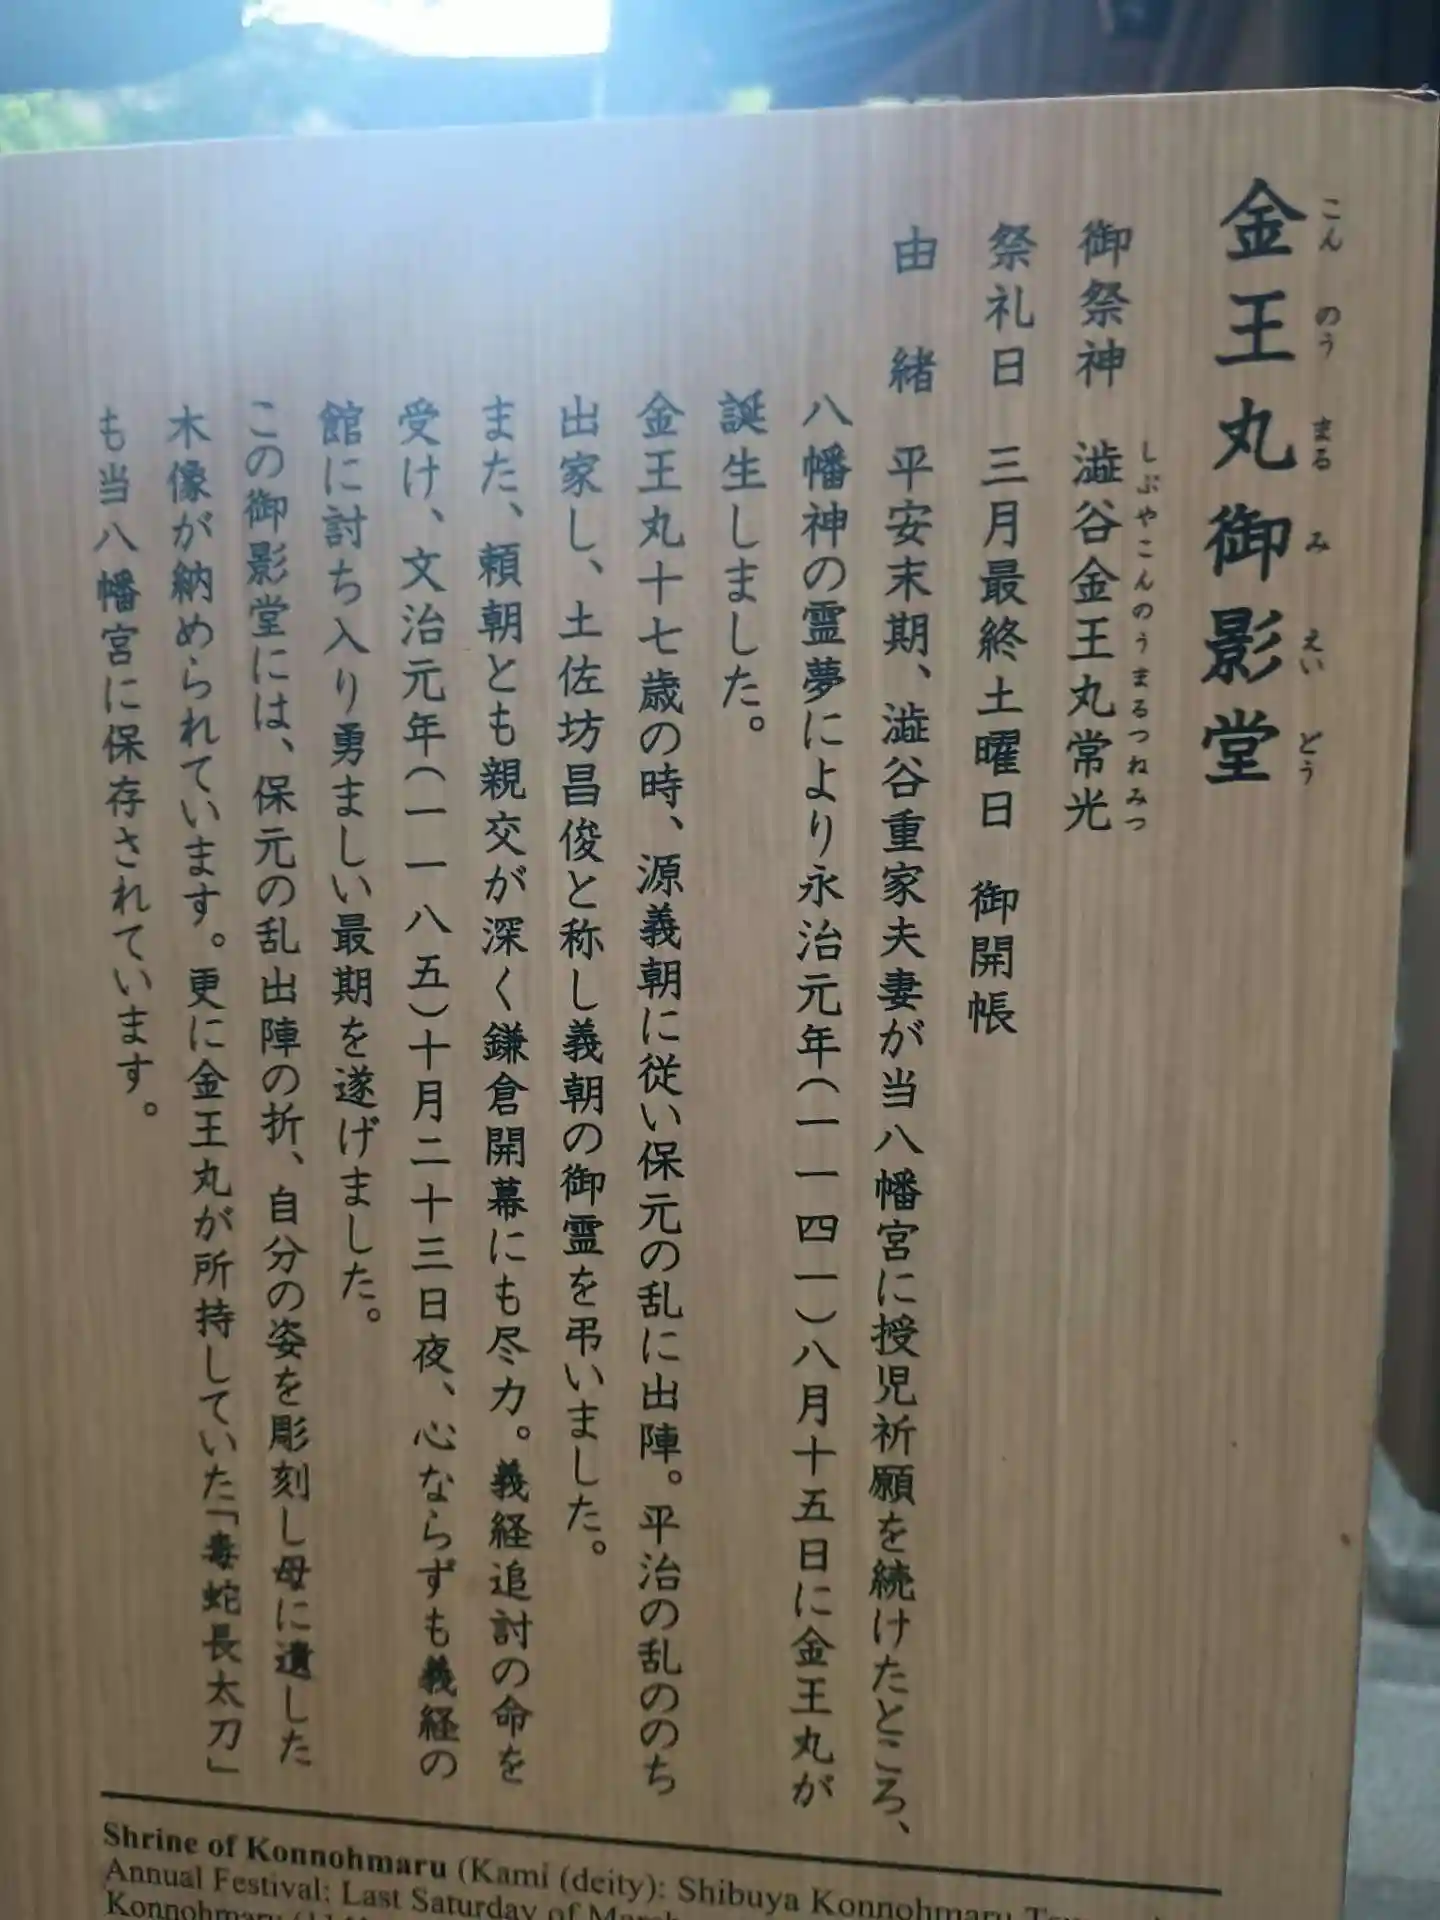 金王丸御影堂
こんのうまるみえいどう
御祭神 澁谷金王丸常光
しぶやこんのうまるつねみつ
祭礼日 三月最終土曜日 御開帳
由緒 平安末期、澁谷重家夫妻が当八幡宮に授児祈願を続けたところ、
八幡神の霊夢により永治元年(一一四一)八月十五日に金王丸が
誕生しました。
金王丸十七歳の時、源義朝に従い保元の乱に出陣。平治の乱ののち
出家し、土佐坊昌俊と称し義朝の御霊を弔いました。
また、頼朝とも親交が深く鎌倉開幕にも尽力。義経追討の命を
受け、文治元年(一一八五)十月二十三日夜、心ならずも義経の
館に討ち入り勇ましい最期を遂げました。
この御影堂には、保元の乱出陣の折、自分の姿を彫刻し母に遺した
木像が納められています。更に金王丸が所持していた「毒蛇長太刀」
も当八幡宮に保存されています。
Shrine of Konnohmaru (Kami (deity): Shibuya Konnohmaru
Annual Festival: Last Saturday of March
Konnohmaru